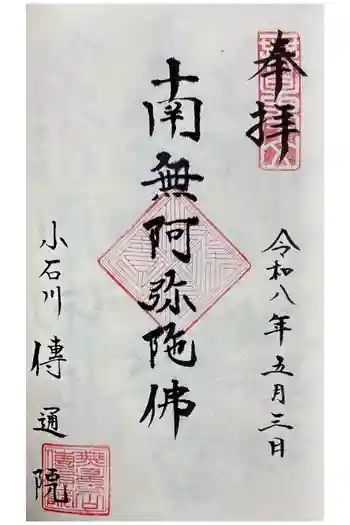 奉拝
令和八年五月三日
南無阿弥陀佛
小石川 傳通院